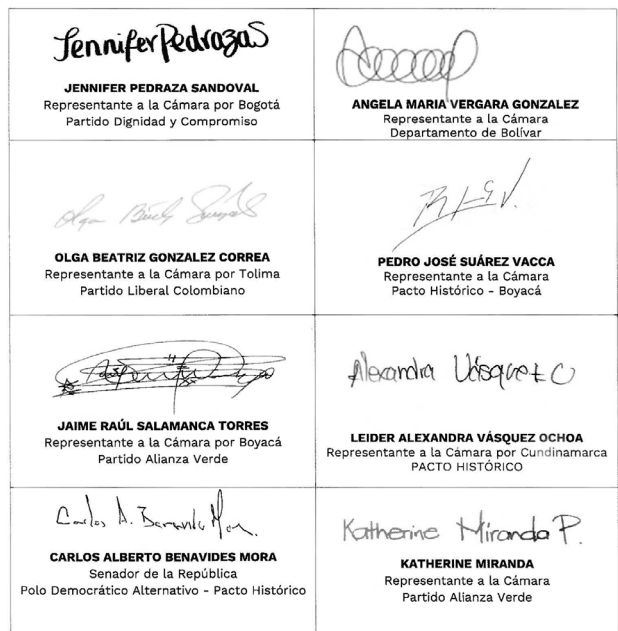 Jennifer Pedraza S
JENNIFER PEDRAZA SANDOVAL
Representante a la Cámara por Bogotá
Partido Dignidad y Compromiso
ANGELA MARIA VERGARA GONZALEZ
Representante a la Cámara
Departamento de Bolívar
Olga Beatriz González
OLGA BEATRIZ GONZALEZ CORREA
Representante a la Cámara por Tolima
Partido Liberal Colombiano
PEDRO JOSÉ SUÁREZ VACCA
Representante a la Cámara
Pacto Histórico - Boyacá
JAIME RAÚL SALAMANCA TORRES
Representante a la Cámara por Boyacá
Partido Alianza Verde
Alexandra Vásquez O
LEIDER ALEXANDRA VÁSQUEZ OCHOA
Representante a la Cámara por Cundinamarca
PACTO HISTÓRICO
Carlos A. Benavides Mora
CARLOS ALBERTO BENAVIDES MORA
Senador de la República
Polo Democrático Alternativo - Pacto Histórico
Katherine Miranda P.
KATHERINE MIRANDA
Representante a la Cámara
Partido Alianza Verde